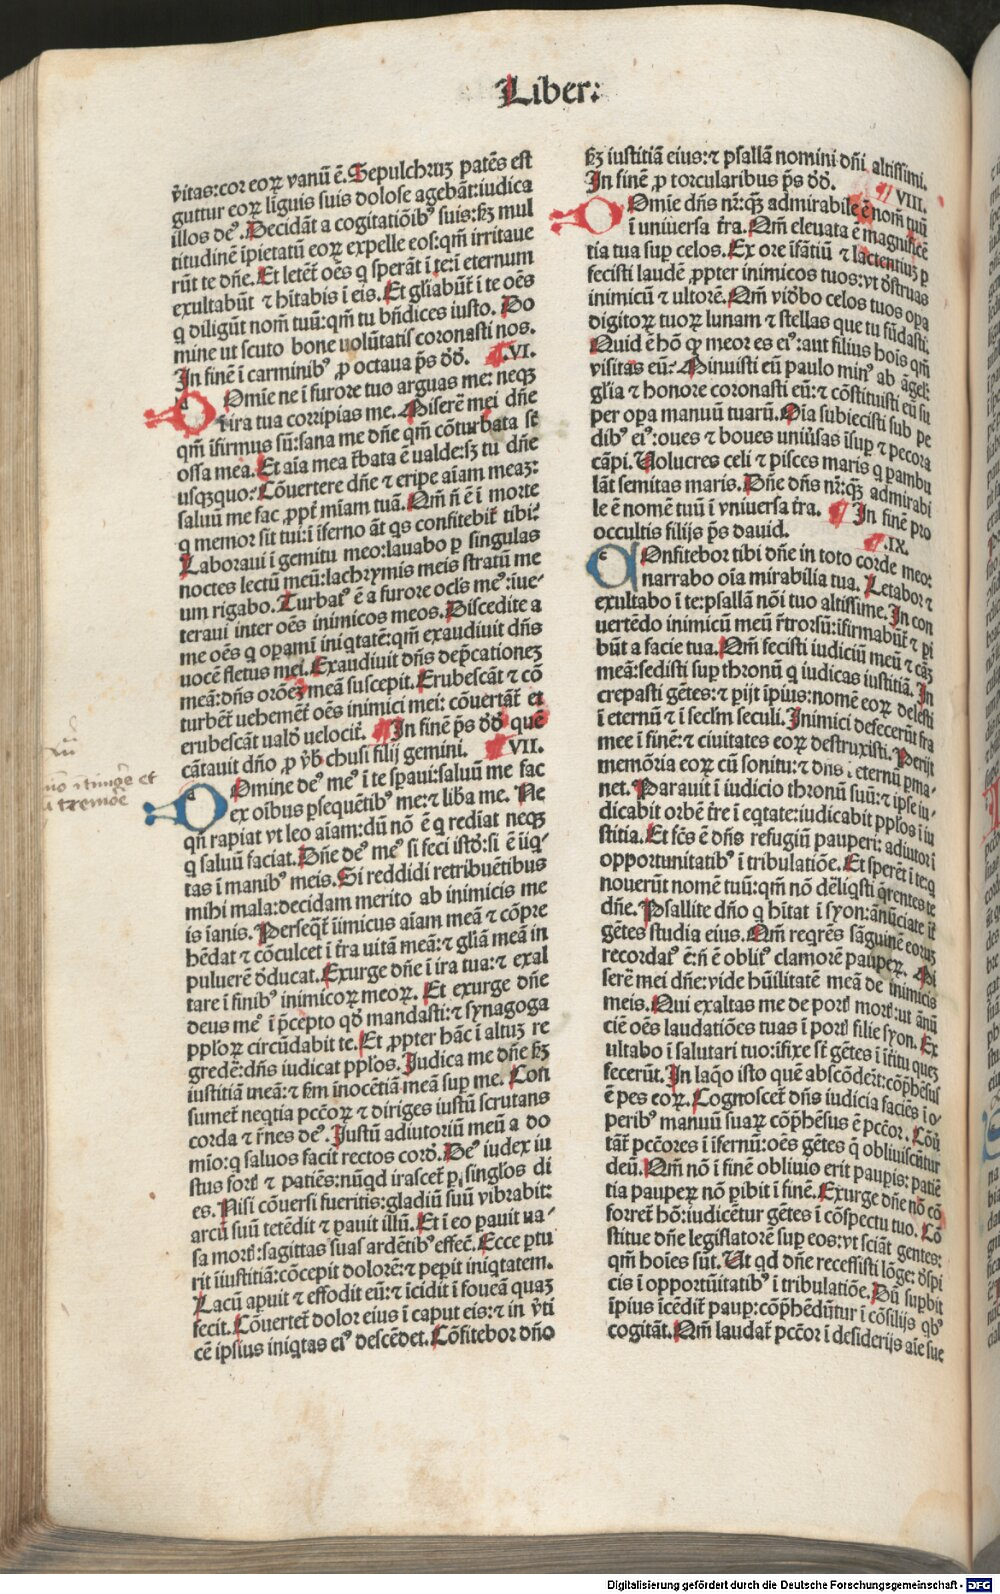 Liber:
v̾itas:cor eoꝝ vanū ē. Sepulchruꝫ patēs est
guttur eoꝝ līguis suis dolose agebāt:iudica
illos deꝰ. Decidāt a cogitatiōibꝰ suis:ẜꝫ mul
titudinē īpietatū eoꝝ expelle eos:qm̄ irritaue
rūt te dn̄e. Et letēt̄ oēs q sperāt ī te:ī eternum
exultabūt ⁊ hītabis ī eis. Et gl̄iabūt̄ ī te oēs
q diligūt nom̄ tuū:qm̄ tu bn̄dices iusto. Do
mine ut scuto bone uolūtatis coronasti nos.
In finē ī carminibꝰ ꝓ octaua p̄s dd̄. ¶.VI.
Domie ne ī furore tuo arguas me: neqꝫ
ī ira tua corripias me. Miserē mei dn̄e
qm̄ īfirmus sū:sana me dn̄e qm̄ cōturbata st̄
ossa mea. Et aīa mea tr̄bata ē valde:sꝫ tu dn̄e
usqꝫquo. Cōuertere dn̄e ⁊ eripe aīam meaꝫ:
saluū me fac ꝓpt̄ miam tuā. Qm̄ n̄ ē ī morte
q memor sit tui:ī īferno āt qs confitebit̄ tibi.
Laboraui ī gemitu meo:lauabo ꝑ singulas
noctes lectū meū:lachrymis meis stratū me
um rigabo. Turbatꝰ ē a furore ocl̄s meꝰ:īue-
teraui inter oēs inimicos meos. Discedite a
me oēs q oꝑami iniqtatē:qm̄ exaudiuit dn̄s
uocē fletus mei. Exaudiuit dn̄s dep̄cationeꝫ
meā:dn̄s orōeꝫ meā suscepit. Erubescāt ⁊ cō
turbēt̄ uehemēt̄ oēs inimici mei: cōuertāt̄ et
erubescāt uald̄ uelocit̄. ¶ In finē p̄s dd̄ quē
cātauit dn̄o ꝓ v̄bꝰ chusi filij gemini. ¶ VII.
Domine deꝰ meꝰ ī te sꝑaui:saluū me fac
ex oībus ꝑsequētibꝰ me:⁊ libꝫa me. Ne
qn̄ rapiat vt leo aīam:dū nō ē q rediat neqꝫ
q saluū faciat. Dn̄e deꝰ meꝰ si feci istd̄:si ē iīq-
tas ī manibꝰ meis. Si reddidi retribuētibus
mihi mala:decidam merito ab inimicis me
is īanis. Persequat̄ īimicus aīam meā ⁊ cōpre
hēdat ⁊ cōculcet ī tr̄a uitā meā:⁊ gl̄iā meā in
puluerē d̄ducat. Exurge dn̄e ī ira tua:⁊ exal
tare ī finibꝰ inimicoꝝ meoꝝ. Et exurge dn̄e
deus meꝰ ī p̄cepto qd̄ mandasti:⁊ synagoga
ppl̄oꝝ circūdabit te. Et ꝓpter hāc ī altuꝫ re
gredē:dn̄s iudicat ppl̄os. Judica me dn̄e ẜꝫ
iustitiā meā:⁊ ẜm inocētiā meā suꝑ me. Con
sumet̄ neqtia pctōꝝ ⁊ diriges iustū scrutans
corda ⁊ rn̄es deꝰ. Justū adiutoriū meū a do
mīo:q saluos facit rectos cord̄. Deꝰ iudex iu
stus forꝭ ⁊ patiēs:nūqd irascet̄ ꝑ singl̄os di
es. Nisi cōuersi fueritis:gladiū suū vibrabit:
arcū suū tetēdit ⁊ ꝑauit illū. Et ī eo ꝑauit ua-
sa mortꝭ:sagittas suas ardētibꝰ effec̄. Ecce ꝑtu
rit iīustitiā:cōcepit dolorē:⁊ peꝑit iniqtatem.
Lacū aꝑuit ⁊ effodit eū:⁊ īcidit ī foueā quaꝫ
fecit. Cōuertet̄ dolor eius ī caput eis:⁊ in v̾ti
cē ipsius iniqtas eiꝰ descēdet. Cōfitebor dn̄o
ẜꝫ iustitiā eius:⁊ psallā nomini dn̄i altissimi.
In finē ꝓ torcularibus p̄s dd̄. ¶ VIII.
Domie dn̄s nr̄:qꝫ admirabile ē nom̄ tuū
ī uniuersa tr̄a. Qm̄ eleuata ē magnificē
tia tua suꝑ celos. Ex ore īfātiū ⁊ lactentiuꝫ ꝑ
fecisti laudē ꝓpter inimicos tuos:vt d̄struas
inimicū ⁊ ultorē. Qm̄ vid̄bo celos tuos oꝑa
digitoꝝ tuoꝝ lunam ⁊ stellas que tu fūdasti.
Quid ē hō qꝫ meor es eiꝰ:aut filius hoīs qm̄
visitas eū. Minuisti eū paulo minꝰ ab āgel̄:
gl̄ia ⁊ honore coronasti eū:⁊ cōstituisti eū su
per oꝑa manuū tuarū. Oīa subiecisti sub pe
dibꝰ eiꝰ:oues ⁊ boues uniūsas īsuꝑ ⁊ pecora
cāpi. Volucres celi ⁊ pisces maris q ꝑambu
lāt semitas maris. Dn̄e dn̄s nr̄:qꝫ admirabi
le ē nomē tuū ī vniuersa tr̄a. ¶ In finē pro
occultis filijs p̄s dauid. ¶.IX.
Confitebor tibi dn̄e in toto corde meo:
narrabo oīa mirabilia tua. Letabor ⁊
exultabo ī te:psallā nōi tuo altissime. In con
uertēdo inimicū meū r̄trorsū:īfirmabūt̄ ⁊ ꝑi
būt a facie tua. Qm̄ fecisti iudiciū meū ⁊ cāꝫ
meā:sedisti suꝑ thronū q iudicas iustitiā. In
crepasti gētes:⁊ ꝑijt īpius:nomē eoꝝ delesti
ī eternū ⁊ ī secl̄m seculi. Inimici defecerūt fra
mee ī finē:⁊ ciuitates eoꝝ destruxisti. Perijt
memōria eoꝝ cū sonitu:⁊ dn̄s ī eternū ꝑma-
net. Parauit ī iudicio thronū suū:⁊ ipse iu-
dicabit orbē tr̄e ī eqtate:iudicabit ppl̄os ī iu
stitia. Et fc̄s ē dn̄s refugiū pauperi: adiutor ī
opportunitatibꝰ ī tribulatiōe. Et sperēt ī te q
nouerūt nomē tuū:qm̄ nō dēliqsti q̄rentes te
dn̄e. Psallite dn̄o q hītat ī syon:ānūciate īt̄
gētes studia eius. Qm̄ reqrēs sāguinē eoruꝫ
recordatꝰ ē:n̄ ē oblitꝰ clamorē pauꝑeꝝ. Mi
serē mei dn̄e:vide hūilitatē meā de inimicis
meis. Qui exaltas me de portꝭ mortꝭ:ut ānū
ciē oēs laudatiōes tuas ī portꝭ filie syon. Ex
ultabo ī salutari tuo:īfixe st̄ gētes ī īt̄itu queꝫ
fecerūt. In laqo isto quē abscōdert̄:cōp̄hēsus
ē pes eoꝝ. Cognoscet̄ dn̄s iudicia faciēs ī o-
peribꝰ manuū suaꝝ cōp̄hēsus ē pctōr. Cōū
tāt̄ pctōres ī īfernū:oēs gētes q obliuiscūtur
deū. Qm̄ nō ī finē obliuio erit pauꝑis: patiē
tia pauꝑeꝝ nō ꝑibit ī finē. Exurge dn̄e nō cō
forret̄ hō:iudicētur gētes ī cōspectu tuo. Cō
stitue dn̄e legislatorē suꝑ eos:vt sciāt gentes:
qm̄ hoīes sūt. Ut qd dn̄e recessisti lōge: d̄spi
cis ī opportūitatibꝰ ī tribulatiōe. Dū suꝑbit
īpius īcēdit̄ pauꝑ:cōp̄hēdūtur ī cōsilijs qbꝰ
cogitāt. Qm̄ laudat̄ pctōr ī desiderijs aīe sue
Digitalisierung gefördert durch die Deutsche Forschungsgemeinschaft - DFG